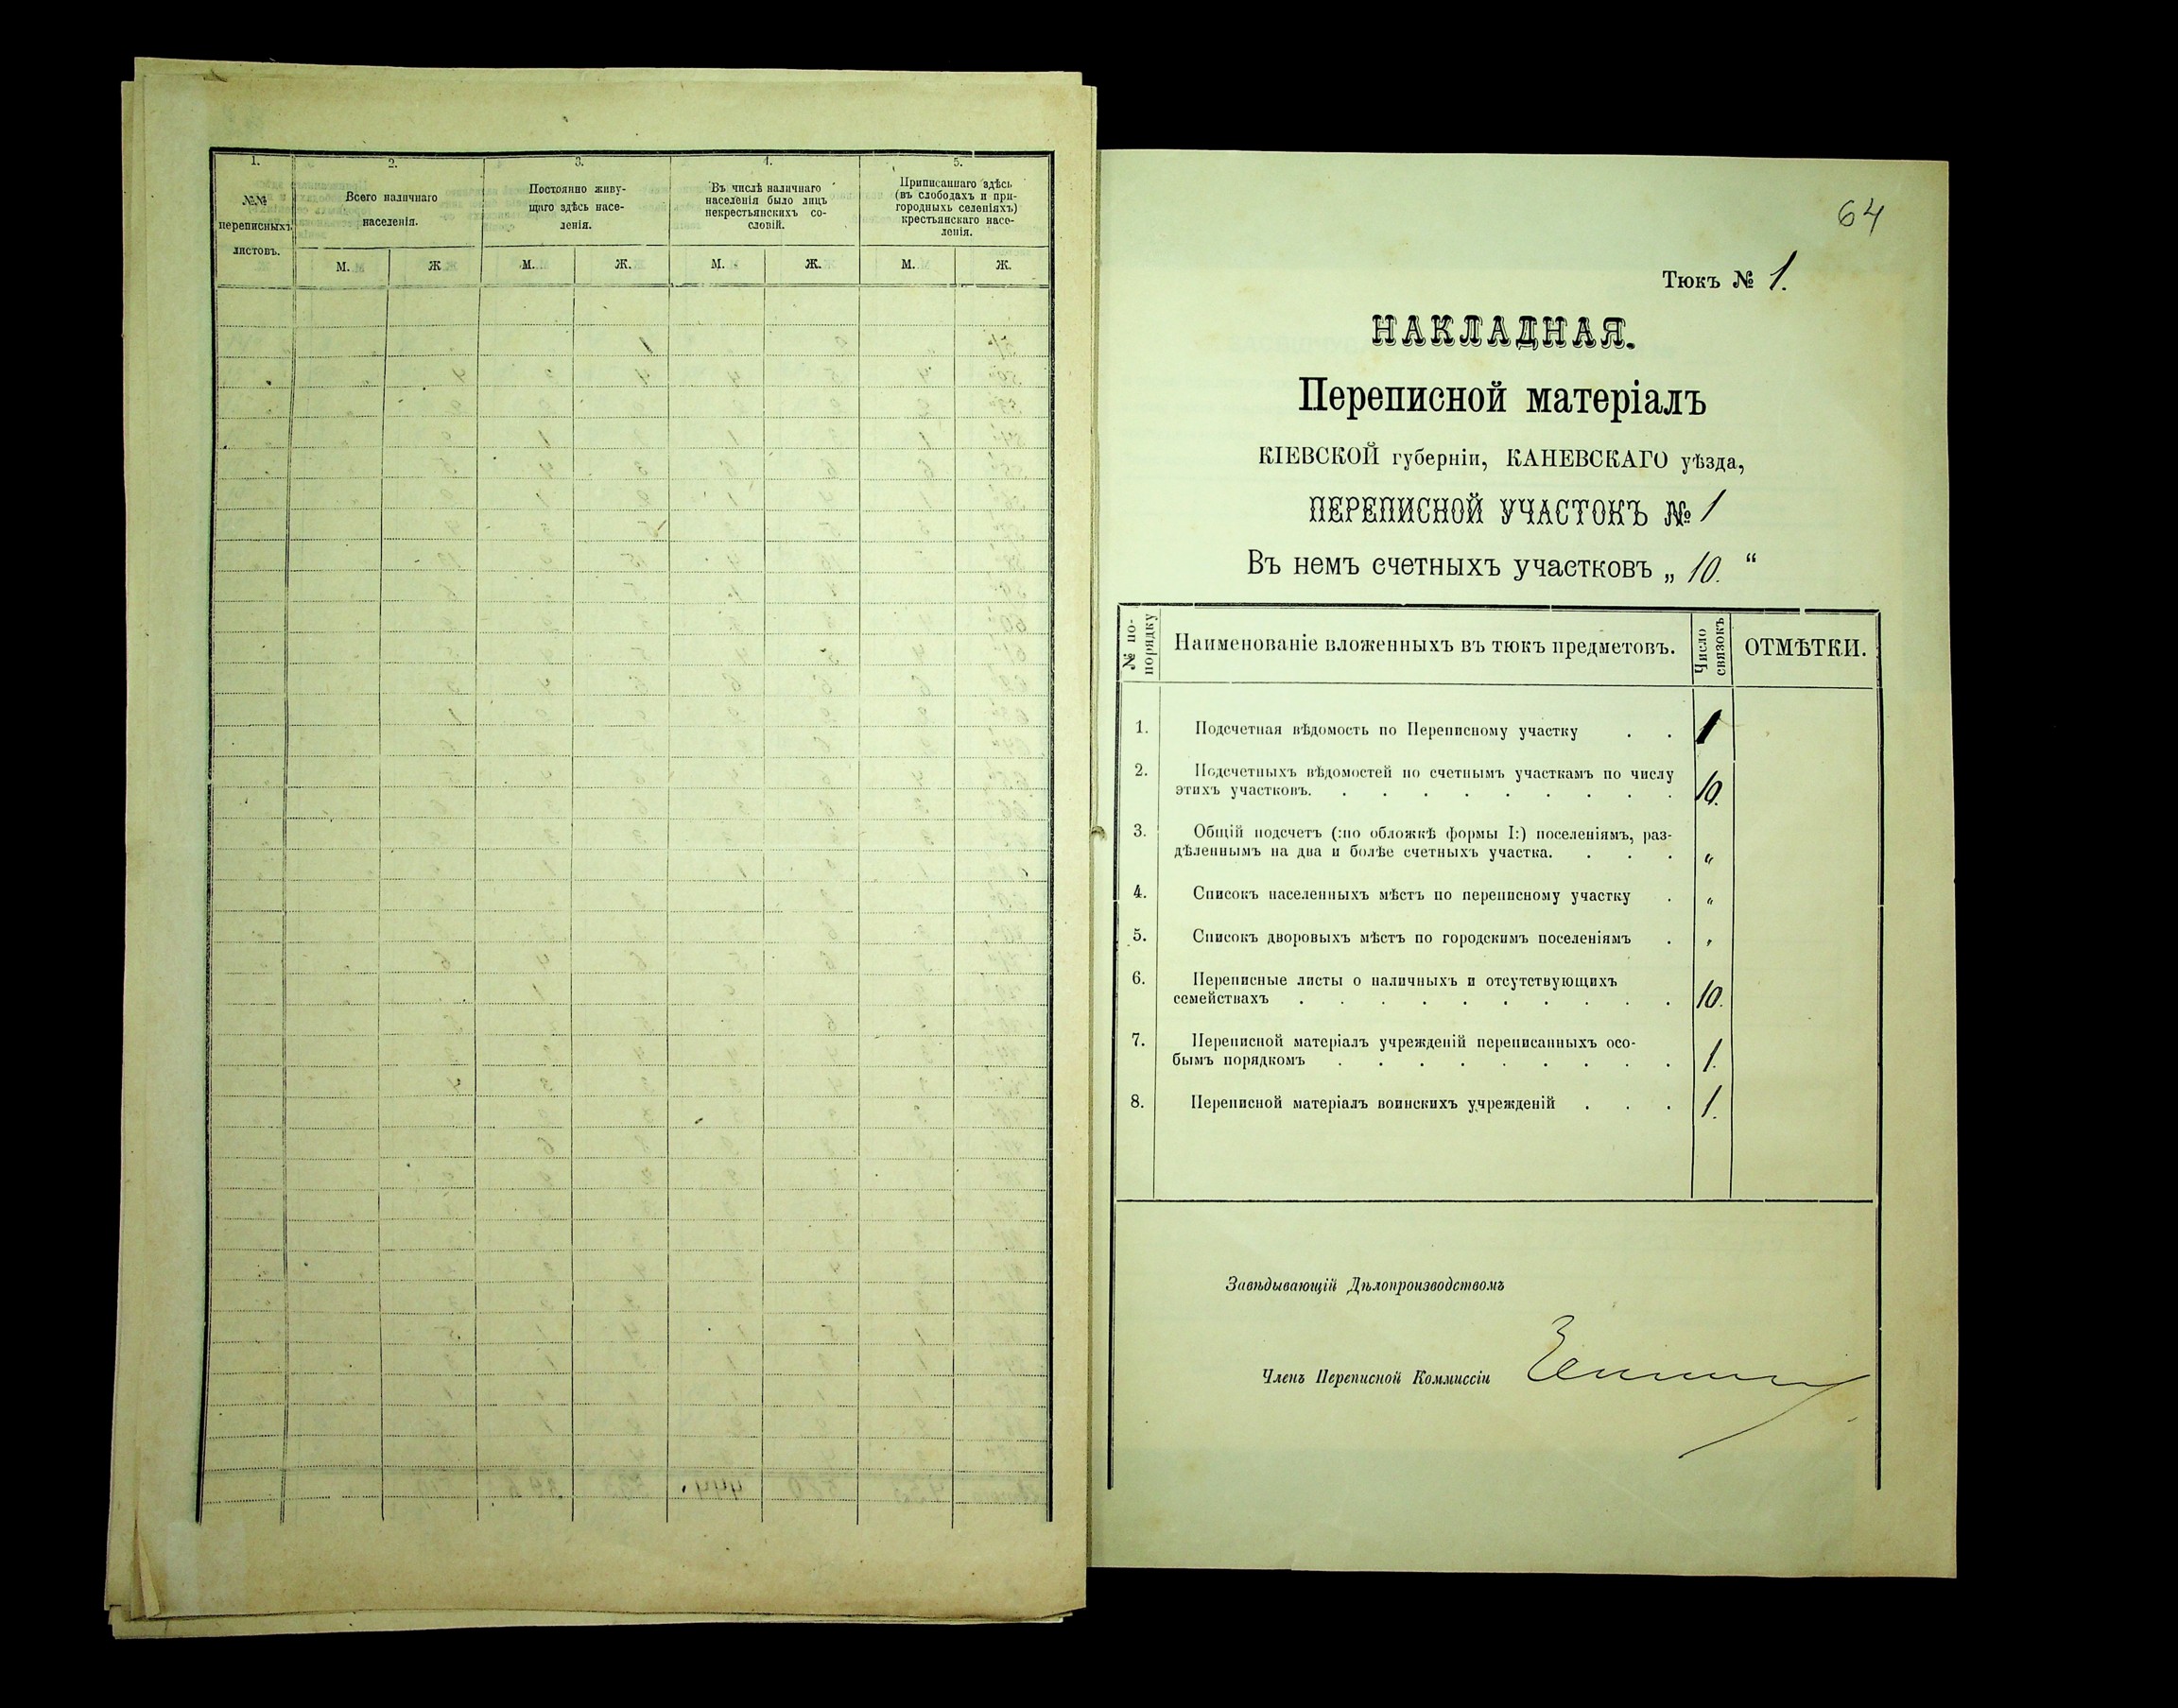 1.
2.
3.
4.
5.
№№
переписныхъ
листовъ.
Всего наличнаго
населенія.
Постоянно живу-
щаго здѣсь насе-
ленія.
Въ числѣ наличнаго
населенія было лицъ
некрестьянскихъ со-
словій.
Приписаннаго здѣсь
(въ слободахъ и при-
городныхъ селеніяхъ)
крестьянскаго насе-
ленія.
М. Ж М. Ж. М. Ж. М. Ж.
64
Тюкъ № 1.
НАКЛАДНАЯ.
Переписной матеріалъ
КІЕВСКОЙ губерніи, КАНЕВСКАГО уѣзда,
ПЕРЕПИСНОЙ УЧАСТОКЪ № 1
Въ немъ счетныхъ участковъ „ 10. “
№ по-
порядку
Наименованіе вложенныхъ въ тюкъ предметовъ.
Число
связокъ
ОТМѢТКИ.
1. Подсчетная вѣдомость по Переписному участку . . 1
2. Подсчетныхъ вѣдомостей по счетнымъ участкамъ по числу
этихъ участковъ. . . . . . . . . . 10.
3. Общій подсчетъ (:по обложкѣ формы I:) поселеніямъ, раз-
дѣленнымъ на два и болѣе счетныхъ участка. . . . „
4. Списокъ населенныхъ мѣстъ по переписному участку . „
5. Списокъ дворовыхъ мѣстъ по городскимъ поселеніямъ . „
6. Переписные листы о наличныхъ и отсутствующихъ
семействахъ . . . . . . . . . . 10.
7. Переписной матеріалъ учрежденій переписанныхъ осо-
бымъ порядкомъ . . . . . . . . . 1.
8. Переписной матеріалъ воинскихъ учрежденій . . . 1.
Завѣдывающій Дѣлопроизводствомъ
Членъ Переписной Коммиссіи